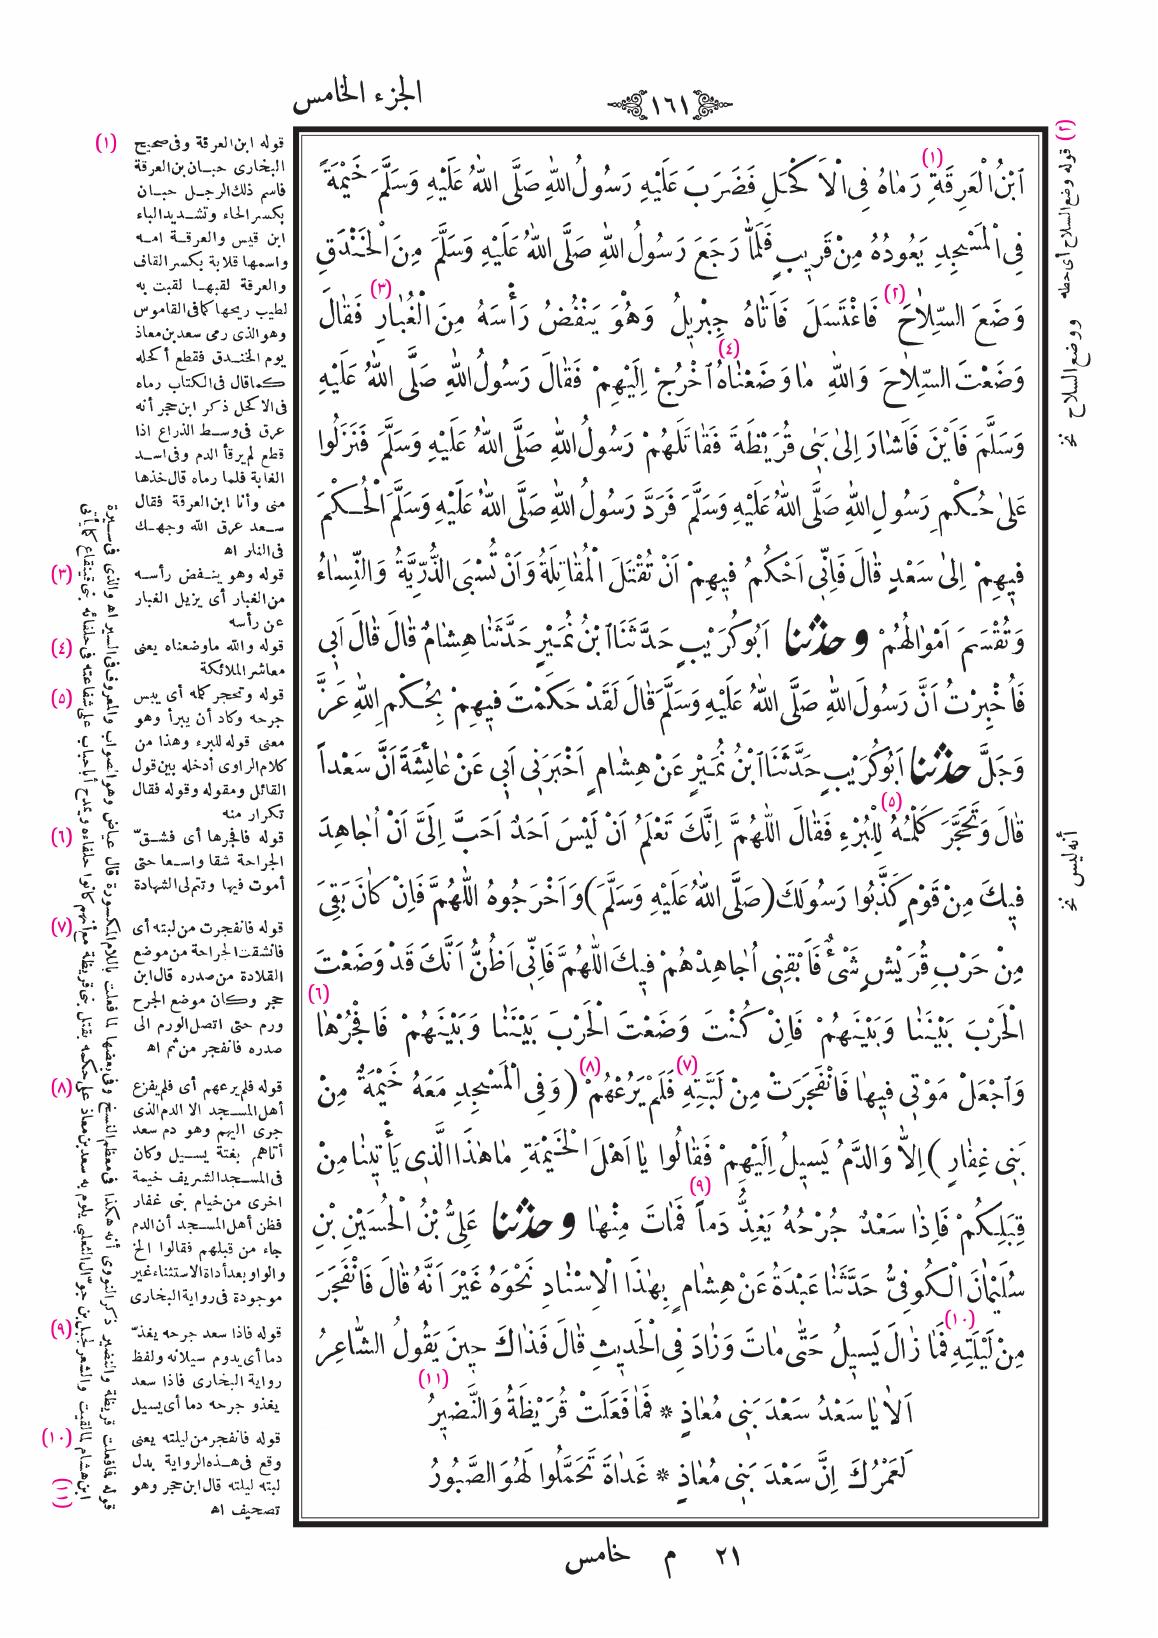 الجزء الخامس
١٦١
اِبْنُ الْعَرِقَةِ (١) رَمَاهُ فِى الْاَكْحَلِ فَضَرَبَ عَلَيْهِ رَسُولُ اللهِ صَلَّى اللهُ عَلَيْهِ وَسَلَّمَ خَيْمَةً
فِى الْمَسْجِدِ يَعُودُهُ مِنْ قَرِيبٍ فَلَمَّا رَجَعَ رَسُولُ اللهِ صَلَّى اللهُ عَلَيْهِ وَسَلَّمَ مِنَ الْخَنْدَقِ
وَضَعَ السِّلَاحَ (٢) فَاغْتَسَلَ فَاَتَاهُ جِبْرِيلُ وَهُوَ يَنْفُضُ رَأْسَهُ مِنَ الْغُبَارِ (٣) فَقَالَ
وَضَعْتَ السِّلَاحَ وَاللهِ مَا وَضَعْنَاهُ (٤) اُخْرُجْ اِلَيْهِمْ فَقَالَ رَسُولُ اللهِ صَلَّى اللهُ عَلَيْهِ
وَسَلَّمَ فَاَيْنَ فَاَشَارَ اِلَى بَنِى قُرَيْظَةَ فَقَاتَلَهُمْ رَسُولُ اللهِ صَلَّى اللهُ عَلَيْهِ وَسَلَّمَ فَنَزَلُوا
عَلَى حُكْمِ رَسُولِ اللهِ صَلَّى اللهُ عَلَيْهِ وَسَلَّمَ فَرَدَّ رَسُولُ اللهِ صَلَّى اللهُ عَلَيْهِ وَسَلَّمَ الْحُكْمَ
فِيهِمْ اِلَى سَعْدٍ قَالَ فَاِنِّى اَحْكُمُ فِيهِمْ اَنْ تُقْتَلَ الْمُقَاتِلَةُ وَاَنْ تُسْبَى الذُّرِّيَّةُ وَالنِّسَاءُ
وَتُقْسَمَ اَمْوَالُهُمْ وحدثنا اَبُو كُرَيْبٍ حَدَّثَنَا ابْنُ نُمَيْرٍ حَدَّثَنَا هِشَامٌ قَالَ قَالَ اَبِى
فَاُخْبِرْتُ اَنَّ رَسُولَ اللهِ صَلَّى اللهُ عَلَيْهِ وَسَلَّمَ قَالَ لَقَدْ حَكَمْتَ فِيهِمْ بِحُكْمِ اللهِ عَزَّ
وَجَلَّ حدثنا اَبُو كُرَيْبٍ حَدَّثَنَا ابْنُ نُمَيْرٍ عَنْ هِشَامٍ اَخْبَرَنِى اَبِى عَنْ عَائِشَةَ اَنَّ سَعْداً
قَالَ وَتَحَجَّرَ كَلْمُهُ (٥) لِلْبُرْءِ فَقَالَ اللّٰهُمَّ اِنَّكَ تَعْلَمُ اَنْ لَيْسَ اَحَدٌ اَحَبَّ اِلَىَّ اَنْ اُجَاهِدَ
فِيكَ مِنْ قَوْمٍ كَذَّبُوا رَسُولَكَ (صَلَّى اللهُ عَلَيْهِ وَسَلَّمَ) وَاَخْرَجُوهُ اللّٰهُمَّ فَاِنْ كَانَ بَقِىَ
مِنْ حَرْبِ قُرَيْشٍ شَىْءٌ فَاَبْقِنِى اُجَاهِدْهُمْ فِيكَ اللّٰهُمَّ فَاِنِّى اَظُنُّ اَنَّكَ قَدْ وَضَعْتَ
الْحَرْبَ بَيْنَنَا وَبَيْنَهُمْ فَاِنْ كُنْتَ وَضَعْتَ الْحَرْبَ بَيْنَنَا وَبَيْنَهُمْ فَافْجُرْهَا (٦)
وَاجْعَلْ مَوْتِى فِيهَا فَانْفَجَرَتْ مِنْ لَبَّتِهِ (٧) فَلَمْ يَرُعْهُمْ (٨) (وَفِى الْمَسْجِدِ مَعَهُ خَيْمَةٌ مِنْ
بَنِى غِفَارٍ) اِلَّا وَالدَّمُ يَسِيلُ اِلَيْهِمْ فَقَالُوا يَا اَهْلَ الْخَيْمَةِ مَا هٰذَا الَّذِى يَأْتِينَا مِنْ
قِبَلِكُمْ فَاِذَا سَعْدٌ جُرْحُهُ يَغِذُّ دَماً (٩) فَمَاتَ مِنْهَا وحدثنا عَلِىُّ بْنُ الْحُسَيْنِ بْنِ
سُلَيْمَانَ الْكُوفِىُّ حَدَّثَنَا عَبْدَةُ عَنْ هِشَامٍ بِهٰذَا الْاِسْنَادِ نَحْوَهُ غَيْرَ اَنَّهُ قَالَ فَانْفَجَرَ
مِنْ لَيْلَتِهِ (١٠) فَمَا زَالَ يَسِيلُ حَتَّى مَاتَ وَزَادَ فِى الْحَدِيثِ قَالَ فَذَاكَ حِينَ يَقُولُ الشَّاعِرُ
اَلَا يَا سَعْدُ سَعْدَ بَنِى مُعَاذٍ * فَمَا فَعَلَتْ قُرَيْظَةُ وَالنَّضِيرُ (١١)
لَعَمْرُكَ اِنَّ سَعْدَ بَنِى مُعَاذٍ * غَدَاةَ تَحَمَّلُوا لَهُوَ الصَّبُورُ
(٢) قوله وضع السلاح أى حطه
ووضع السلاح نخ
أنه ليس نخ
(١) قوله ابن العرقة وفى صحيح
البخارى حبـان بن العرقة
فاسم ذلك الرجـل حبـان
بكسر الحاء وتشـديد الباء
ابن قيس والعرقـة امـه
واسمها قلابة بكسر القاف
والعرقة لقبهـا لقبت به
لطيب ريحها كما فى القاموس
وهو الذى رمى سعد بن معاذ
يوم الخنـدق فقطع أكحله
كما قال فى الكتاب رماه
فى الاكحل ذكر ابن حجر أنه
عرق فى وسـط الذراع اذا
قطع لم يرقأ الدم وفى اسـد
الغابة فلما رماه قال خذها
منى وأنا ابن العرقة فقال
سـعد عرق الله وجهـك
فى النار اه
(٣) قوله وهو ينـفض رأسـه
من الغبار أى يزيل الغبار
عن رأسه
(٤) قوله والله ما وضعناه يعنى
معاشر الملائكة
(٥) قوله وتحجر كلمه أى يبس
جرحه وكاد أن يبرأ وهو
معنى قوله للبرء وهذا من
كلام الراوى أدخله بين قول
القائل ومقوله وقوله فقال
تكرار منه
(٦) قوله فافجرها أى فشـقّ
الجراحة شقا واسـعا حتى
أموت فيها وتتم لى الشهادة
(٧) قوله فانفجرت من لبته أى
فانشقت الجراحة من موضع
القلادة من صدره قال ابن
حجر وكان موضع الجرح
ورم حتى اتصل الورم الى
صدره فانفجر من ثم اه
(٨) قوله فلم يرعهم أى فلم يفزع
أهل المسـجد الا الدم الذى
جرى اليهم وهو دم سعد
أتاهم بغتة يسـيل وكان
فى المسـجد الشريف خيمة
اخرى من خيام بنى غفار
فظن أهل المسـجد أن الدم
جاء من قبلهم فقالوا الخ
والواو بعد أداة الاستثناء غير
موجودة فى رواية البخارى
(٩) قوله فاذا سعد جرحه يغذّ
دما أى يدوم سيلانه ولفظ
رواية البخارى فاذا سعد
يغذو جرحه دما أى يسيل
(١٠) قوله فانفجر من ليلته يعنى
وقع فى هـذه الرواية بدل
لبته ليلته قال ابن حجر وهو
تصحيف اه
(١١) قوله فما فعلت قريظة والنضير ذكر النووى أنه هكذا فى معظم النسخ وفى بعضها لما فعلت باللام المكسورة قال عياض وهو الصواب والمعروف فى السير اه والذى فى سـيرة
ابن هشام لما لقيت والشعر لجبل بن جوّال الثعلبى يلوم به سعد بن معاذ على حكمه بقتل بنى قريظة مع أنهم كانوا حلفاءه ويمدح أبا حباب على شفاعته فى حلفائه بنى قينقاع كما يأتى
٢١ م خامس